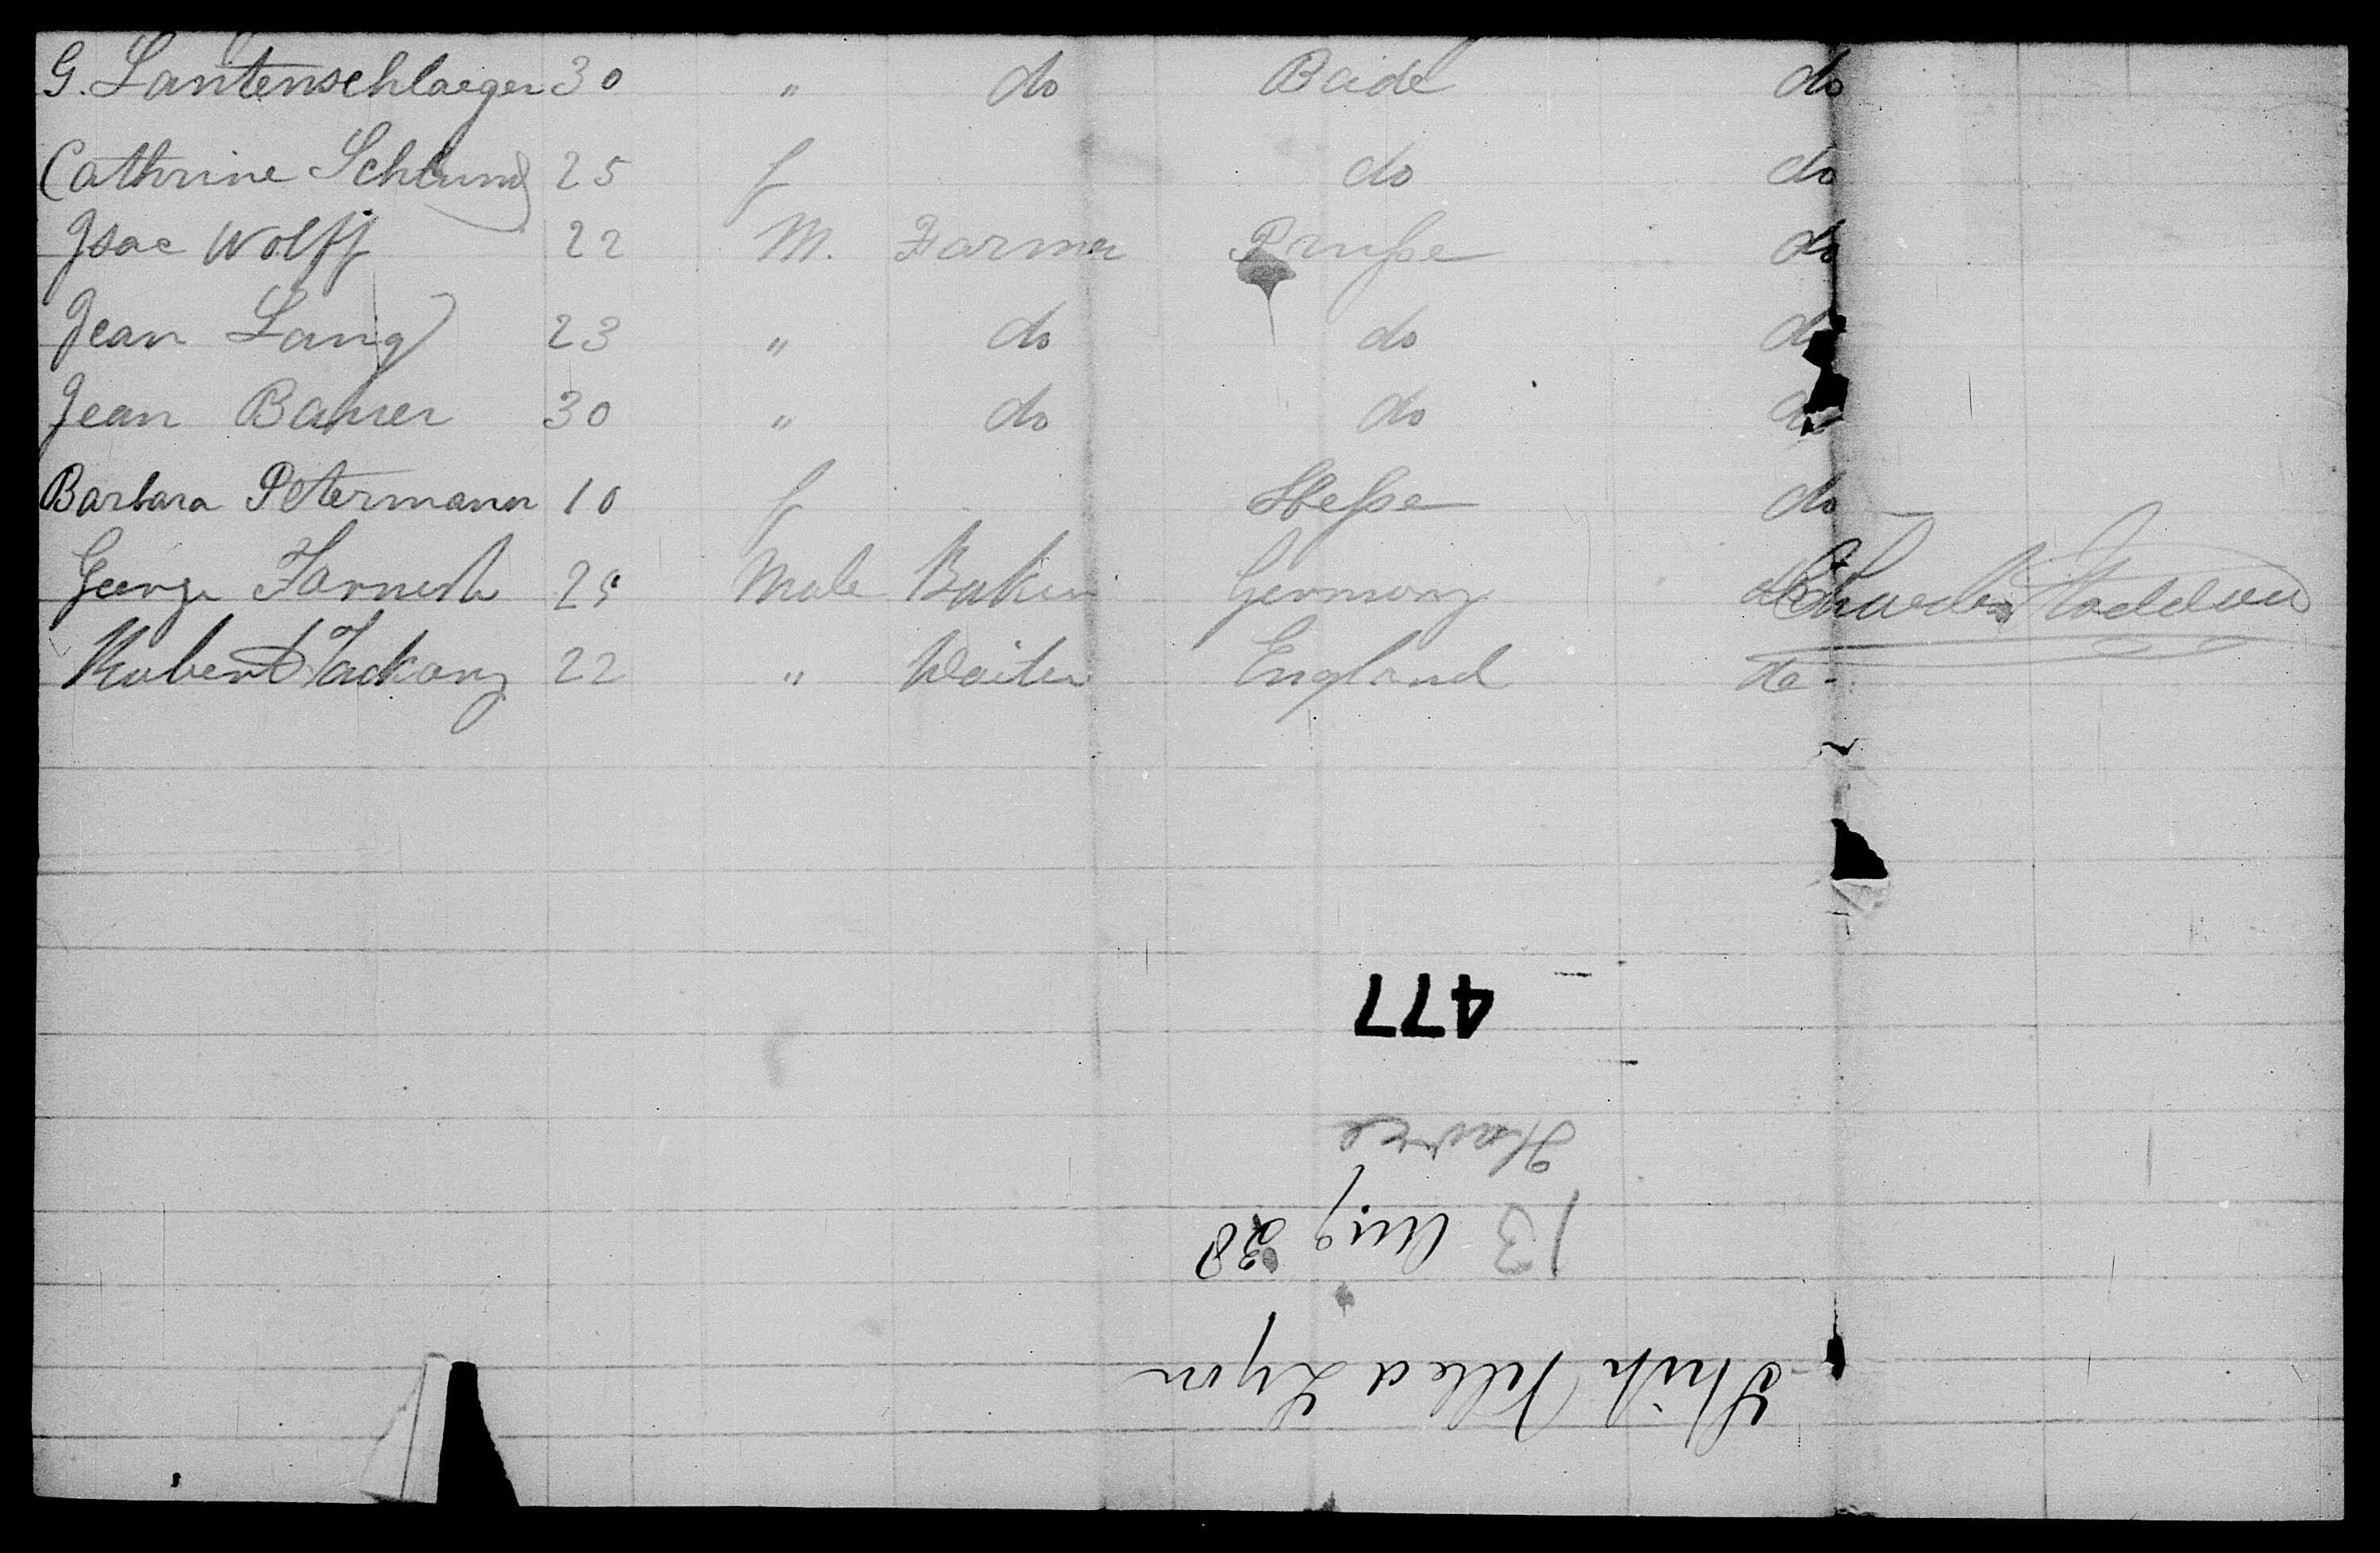 G. Lantenschlaeger 30 " do Bade do
Cathrine Schlund 25 f do do
Isac Wolff 22 M. Farmer Prusse do
Jean Lang 23 " do do do
Jean Bahrer 30 " do do do
Barbara Petermann 10 f Hesse do
George 25 Male Baker Germany do Charles Stoddard
Robert 22 " Waiter England do -
477
Havre
13 Aug 28
Ship Ville d Lyon